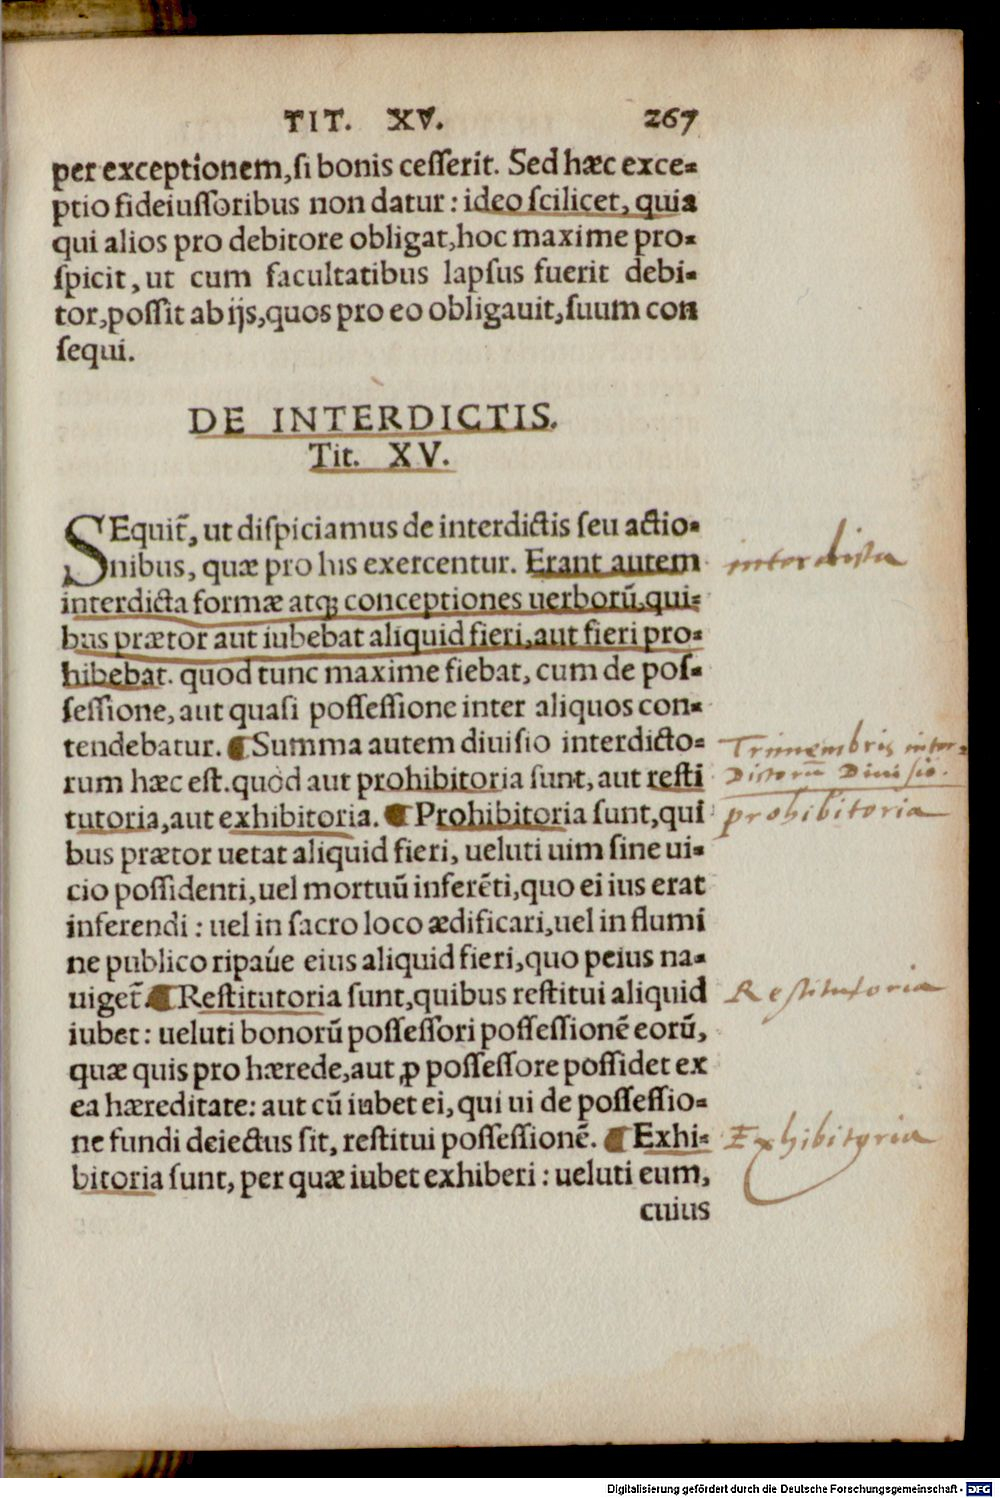 TIT. XV. 267
per exceptionem, si bonis cesserit. Sed hæc exce-
ptio fideiussoribus non datur: ideo scilicet, quia
qui alios pro debitore obligat, hoc maxime pro-
spicit, ut cum facultatibus lapsus fuerit debi-
tor, possit ab ijs, quos pro eo obligauit, suum con
sequi.
DE INTERDICTIS.
Tit. XV.
SEquit̃, ut dispiciamus de interdictis seu actio-
nibus, quæ pro his exercentur. Erant autem
interdicta formæ atq; conceptiones uerborũ, qui-
bus prætor aut iubebat aliquid fieri, aut fieri pro-
hibebat. quod tunc maxime fiebat, cum de pos-
sessione, aut quasi possessione inter aliquos con-
tendebatur. ¶ Summa autem diuisio interdicto-
rum hæc est. quòd aut prohibitoria sunt, aut resti
tutoria, aut exhibitoria. ¶ Prohibitoria sunt, qui
bus prætor uetat aliquid fieri, ueluti uim sine ui-
cio possidenti, uel mortuũ inferẽti, quo ei ius erat
inferendi: uel in sacro loco ædificari, uel in flumi
ne publico ripaúe eius aliquid fieri, quo peius na-
uiget̃. ¶ Restitutoria sunt, quibus restitui aliquid
iubet: ueluti bonorũ possessori possessionẽ eorũ,
quæ quis pro hærede, aut ꝓ possessore possidet ex
ea hæreditate: aut cũ iubet ei, qui ui de possessio-
ne fundi deiectus sit, restitui possessionẽ. ¶ Exhi-
bitoria sunt, per quæ iubet exhiberi: ueluti eum,
cuius
interdicta
Trimembris inter-
dictorũ Diuisio.
prohibitoria
Restitutoria
Exhibitoria
Digitalisierung gefördert durch die Deutsche Forschungsgemeinschaft - DFG